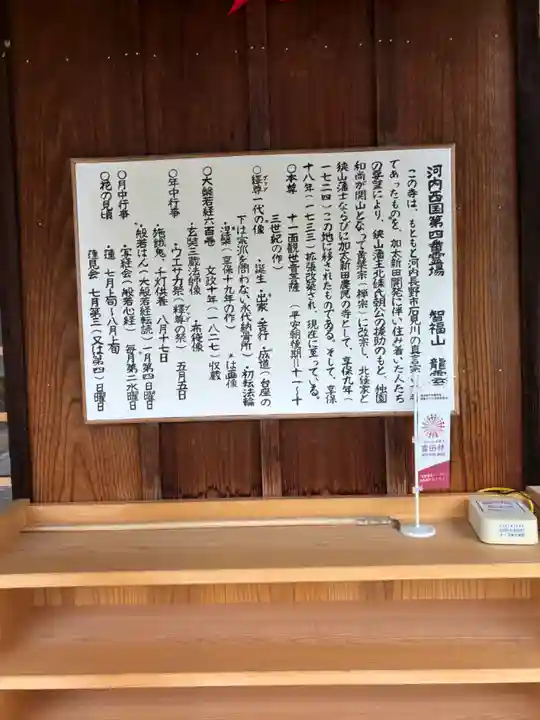 河内西国第四番霊場　智福山　龍雲
この寺は、もともと河内長野市石見川の真言宗
であったものを、加太新田開発に伴い住み着いた人たち
の要望により、狭山藩主北條氏朝公の援助のもと、独園
和尚が開山となって黄檗宗（禅宗）に改宗し、北條家と
狭山藩士ならびに加太新田農民の寺として、享保九年（
一七二四）この地に移されたものである。そして、享保
十八年（一七三三）拡張改築され、現在に至っている。
○本尊　十一面観世音菩薩　（平安朝後期＝十一〜十
三世紀の作）
○釋尊一代の像　・誕生・出家・苦行・成道（台座の
下は宗派を問わない永代納骨所）・初転法輪
・涅槃（享保十九年の作）　×は画像
○大盤若経六百巻　文政十年（一八二七）収蔵
・玄奘三蔵法師像　・布袋像
○年中行事　・ウエサカ祭（釋尊の祭）　五月五日
・施餓鬼、千灯供養　八月十七日
・般若は人（大般若経転読）一月第四日曜日
○月中行事　・写経会（般若心経）　毎月第二水曜日
○花の見頃　・蓮　七月上旬〜八月上旬
蓮見会　七月第三（又は第四）日曜日
富田林